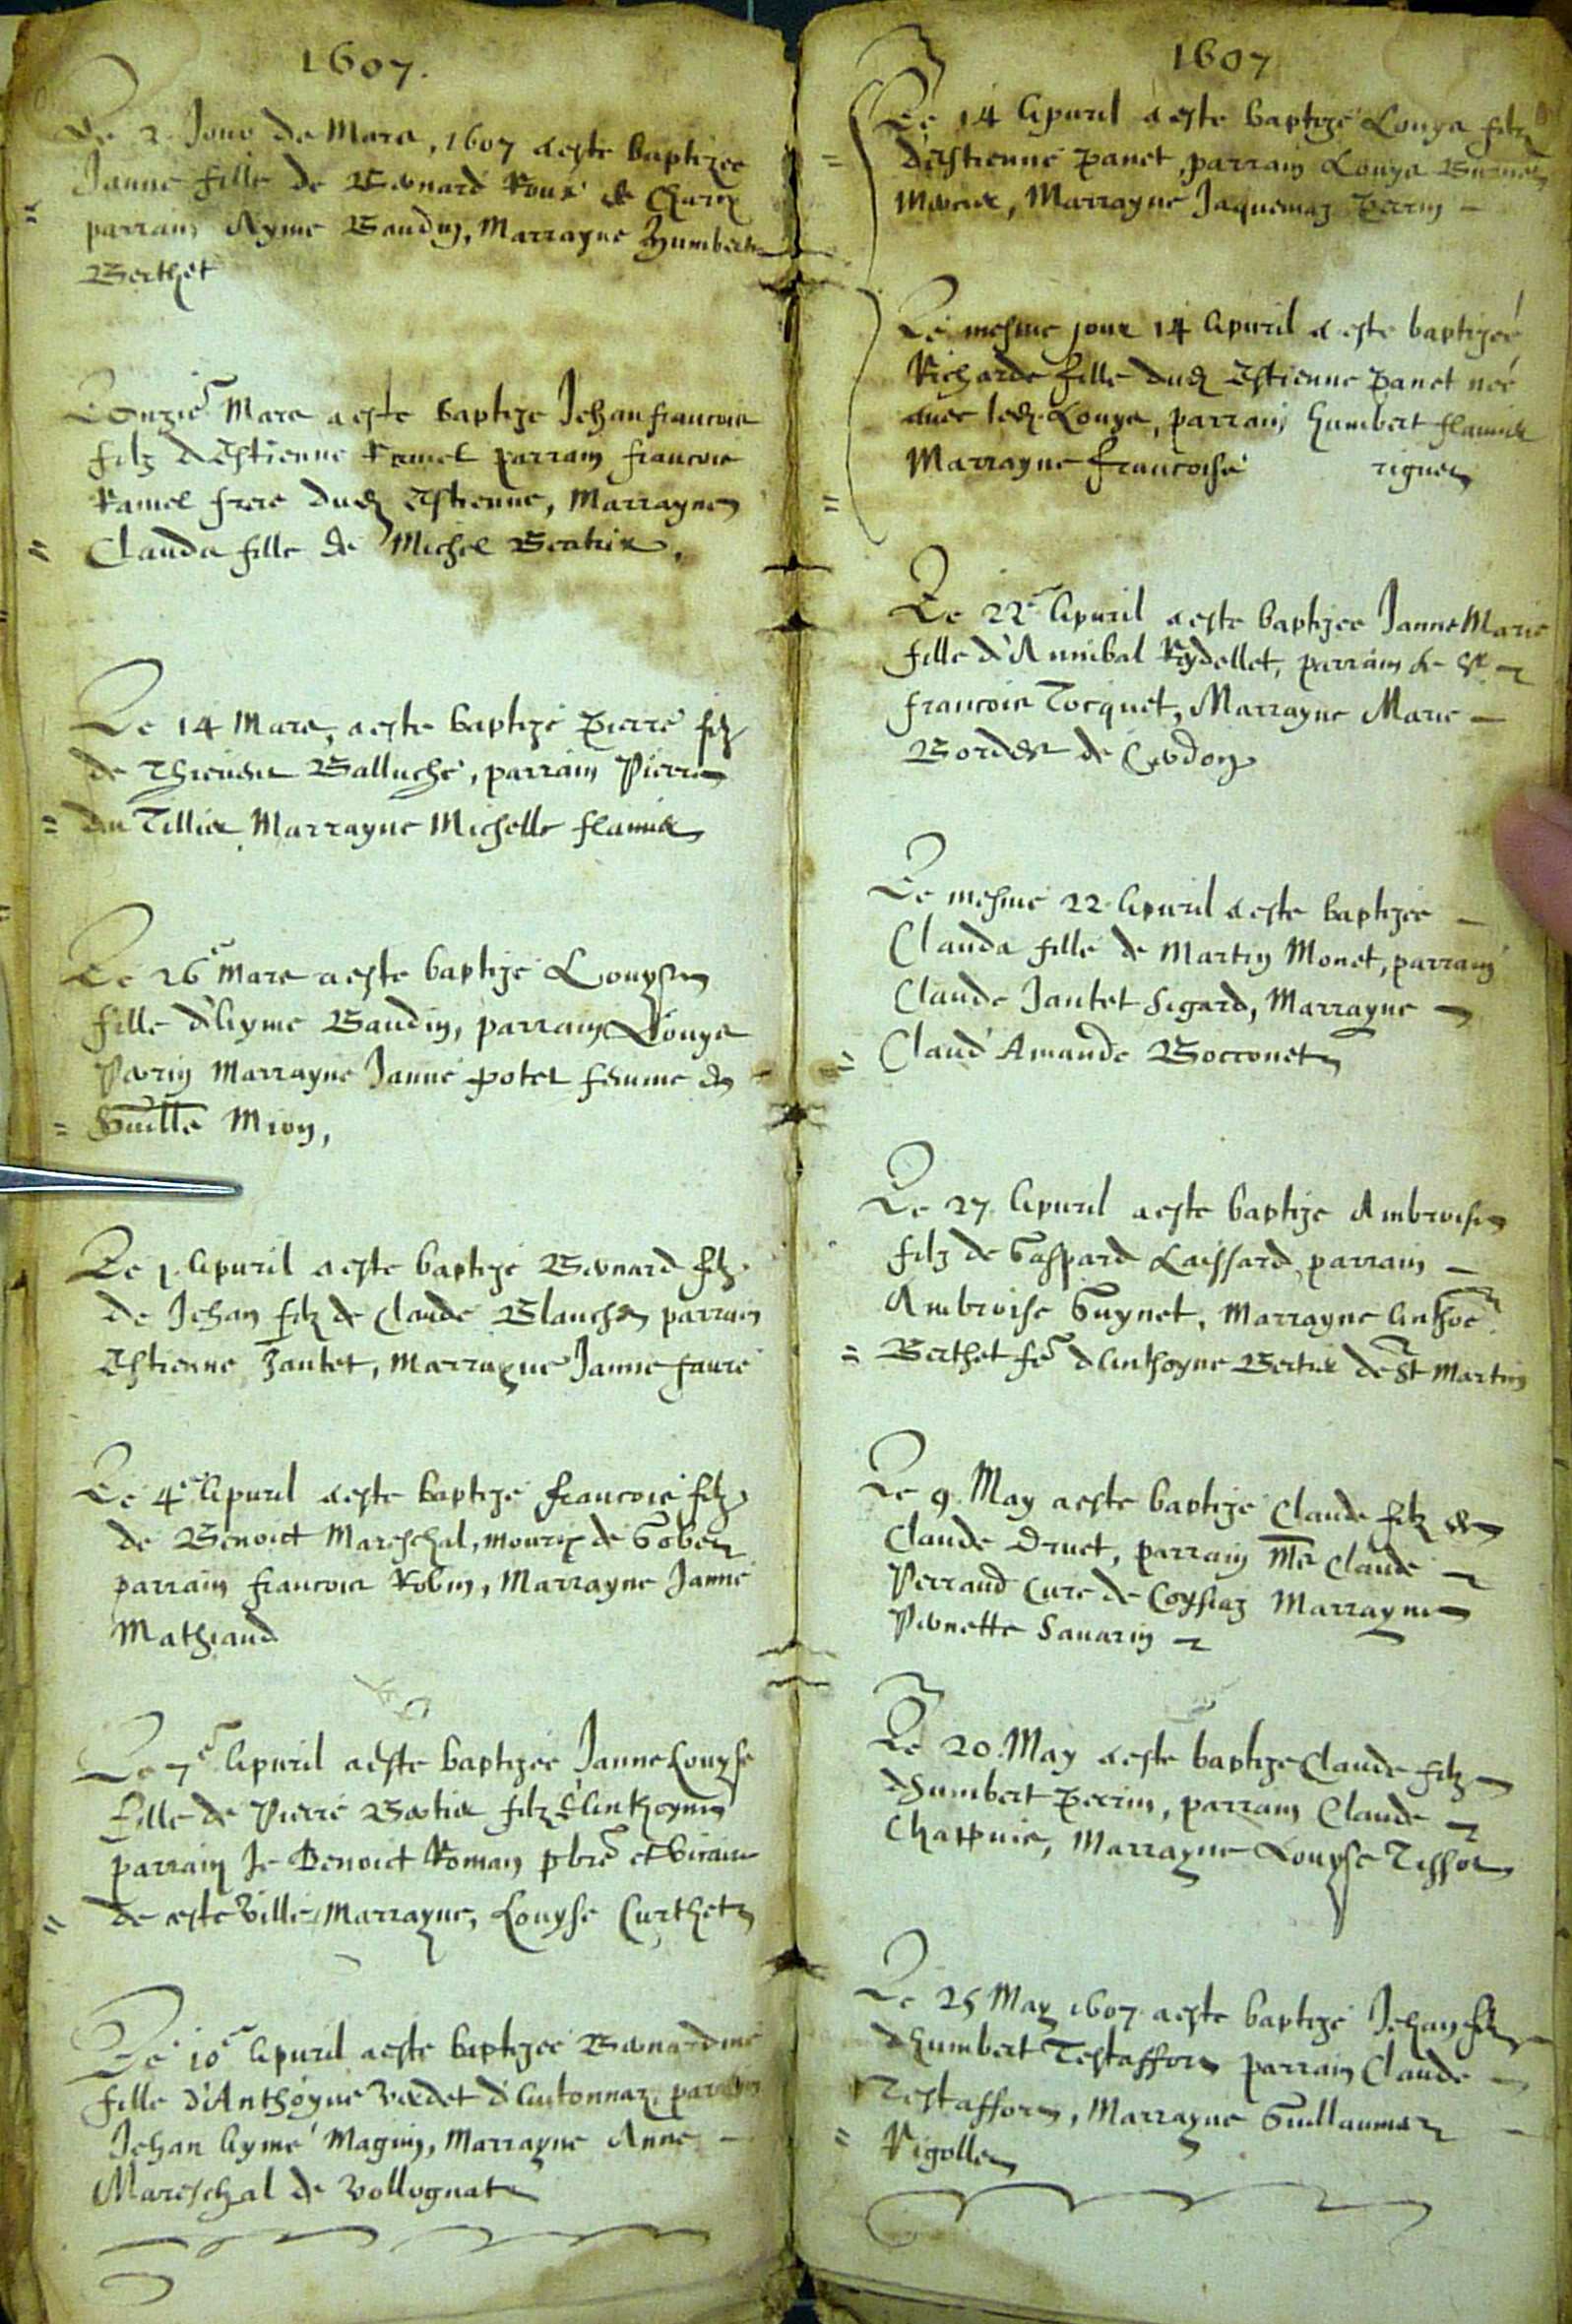 1607.
Le 2. Jour de Mars, 1607 a este baptizee
Janne fille de Bernard Roux de Charix
parrain Ayme Baudin, Marrayne Humberte
Berthet
L'Onzie Mars a este baptize Jehan francois
filz d'Estienne Ramel parrain francois
Ramel frere dud Estienne, Marrayne
Clauda fille de Michel Beatrix.
Le 14 Mars, a este baptizé Pierre filz
de Balluche, parrain Pierre
du Tillier Marrayne Michelle flamier
Le 26e Mars a este baptizé Louyse
fille d'Ayme Baudin, parrain Louys
Perrin Marrayne Janne potel femme de
Guille Mion,
Le 1. Apuril a este baptizé Bernard filz
de Jehan filz de Claude Blanchet parrain
Estienne Jantet, Marrayne Janne faure
Le 4e Apuril a este baptizé francois filz
de Benoict Mareschal, de
parrain francois Robin, Marrayne Janne
Mathiaud
Le 7e Apuril a este baptizee Janne Louyse
fille de Pierre Bertier filz d'Anthoyne
parrain Je Benoict Roman pbre et vicaire
de ceste ville, Marrayne, Louyse Curthet
Le 10e Apuril a este baptizee Bernardine
fille d'Anthoyne Verdet d'Autonnaz, parrain
Jehan Aymé Magnin, Marrayne Anne
Mareschal de Vollognat
1607
Le 14 Apuril a este baptizé Louys filz
d'Estienne Panet, parrain Louys
Mercier, Marrayne Jaquemaz Perrin
Le mesme jour 14 Apuril a este baptizeé
Richarde fille dud Estienne Panet neé
auec led. Louys, parrain humbert flamier
Marrayne francoise riguet
Le 22e Apuril a este baptizee Janne Marie
fille d'Annibal Rydellet, parrain le Sr
francois Tocquet, Marrayne Marie
Bordet de Cerdon
Le mesme 22. Apuril a este baptizée
Clauda fille de Martin Monet, parrain
Claude Jantet Sigard, Marrayne
Claud' Amande Bocconet
Le 27. Apuril a este baptize Ambroise
filz de Gaspard Laissard parrain
Ambroise Guynet, Marrayne Anthoe
Berthet fe d'Anthoyne Bertier de St Martin
Le 9. May a este baptizé Claude filz de
Claude Druet, parrain Mre Claude
Perraud Cure de Coysiaz Marrayne
Pernette Sauarin
Le 20. May a este baptize Claude filz
d'humbert Perrin, parrain Claude
Chappuis, Marrayne Louyse Tissot
Le 25 May 1607 a este baptizé Jehan filz
d'humbert Testaffort parrain Claude
Testaffort, Marrayne Guillaumaz
Pigollet